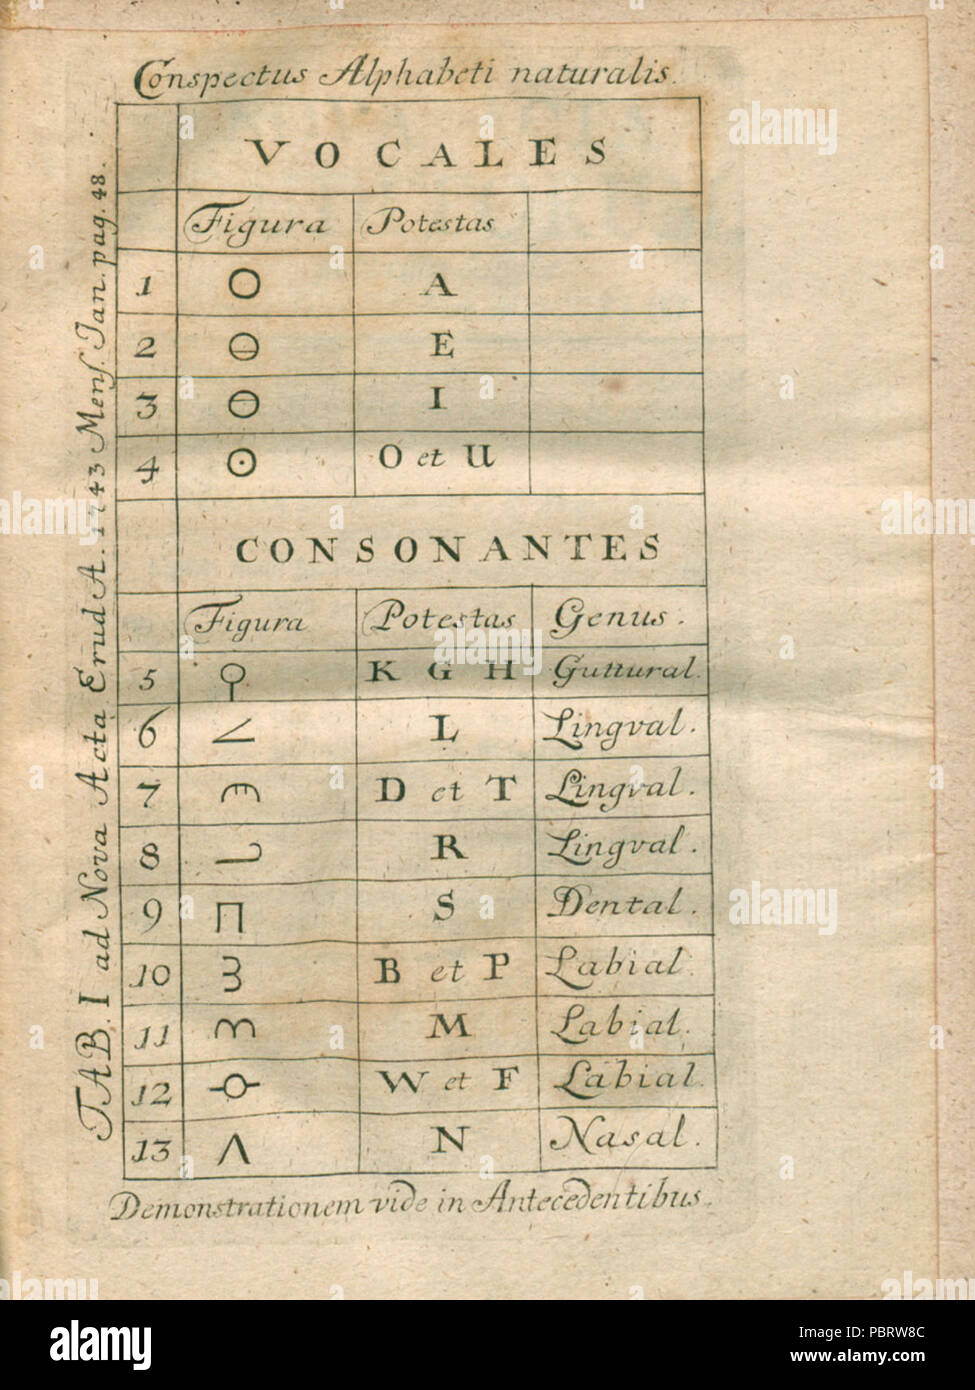 Conspectus Alphabeti naturalis.
VOCALES
Figura Potestas
1 A
2 E
3 I
4 O et U
CONSONANTES
Figura Potestas Genus.
5 K G H Guttural.
6 L Lingval.
7 D et T Lingval.
8 R Lingval.
9 S Dental.
10 B et P Labial.
11 M Labial.
12 W et F Labial.
13 N Nasal.
Demonstrationem vide in Antecedentibus.
TAB. I ad Nova Acta Erud A. 1743 Mens. Jan. pag. 48.
alamy
alamy
alamy
alamy
alamy
alamy
alamy
alamy
alamy
Image ID: PBRW8C
www.alamy.com